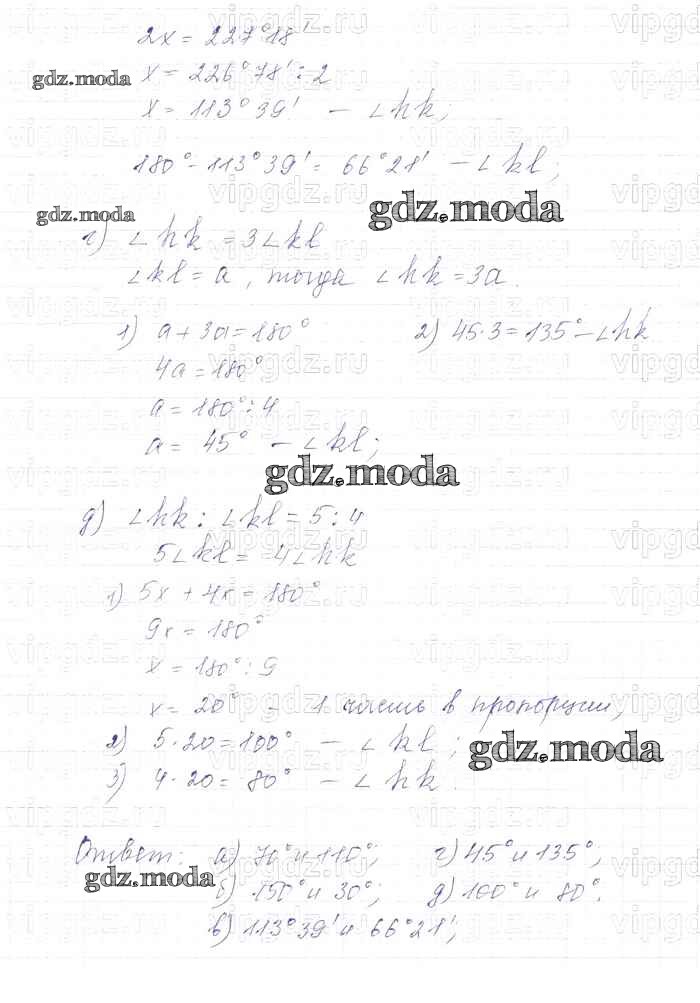 2x = 227°18'
gdz.moda x = 226°78' : 2
x = 113°39' – ∠hk;
180° – 113°39' = 66°21' – ∠kl;
gdz.moda
gdz.moda
г) ∠hk = 3∠kl
∠kl = a, тогда ∠hk = 3a.
1) a + 3a = 180° 2) 45·3 = 135° – ∠hk
4a = 180°
a = 180° : 4
a = 45° – ∠kl;
gdz.moda
д) ∠hk : ∠kl = 5 : 4
5∠kl = 4∠hk
1) 5x + 4x = 180°
9x = 180°
x = 180° : 9
x = 20° – 1 часть в пропорции,
2) 5·20 = 100° – ∠kl;
gdz.moda
3) 4·20 = 80° – ∠hk.
Ответ: а) 70° и 110°; г) 45° и 135°;
gdz.moda б) 150° и 30°; д) 100° и 80°.
в) 113°39' и 66°21';